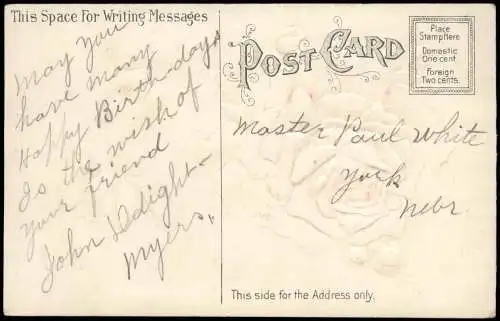 This Space For Writing Messages
May you
have many
Happy Birth-days
Is the wish of
your friend
John Dwight
Myers.
POST CARD
Place
Stamp Here
Domestic
One cent.
Foreign
Two cents.
Master Paul White
York
Nebr
This side for the Address only.